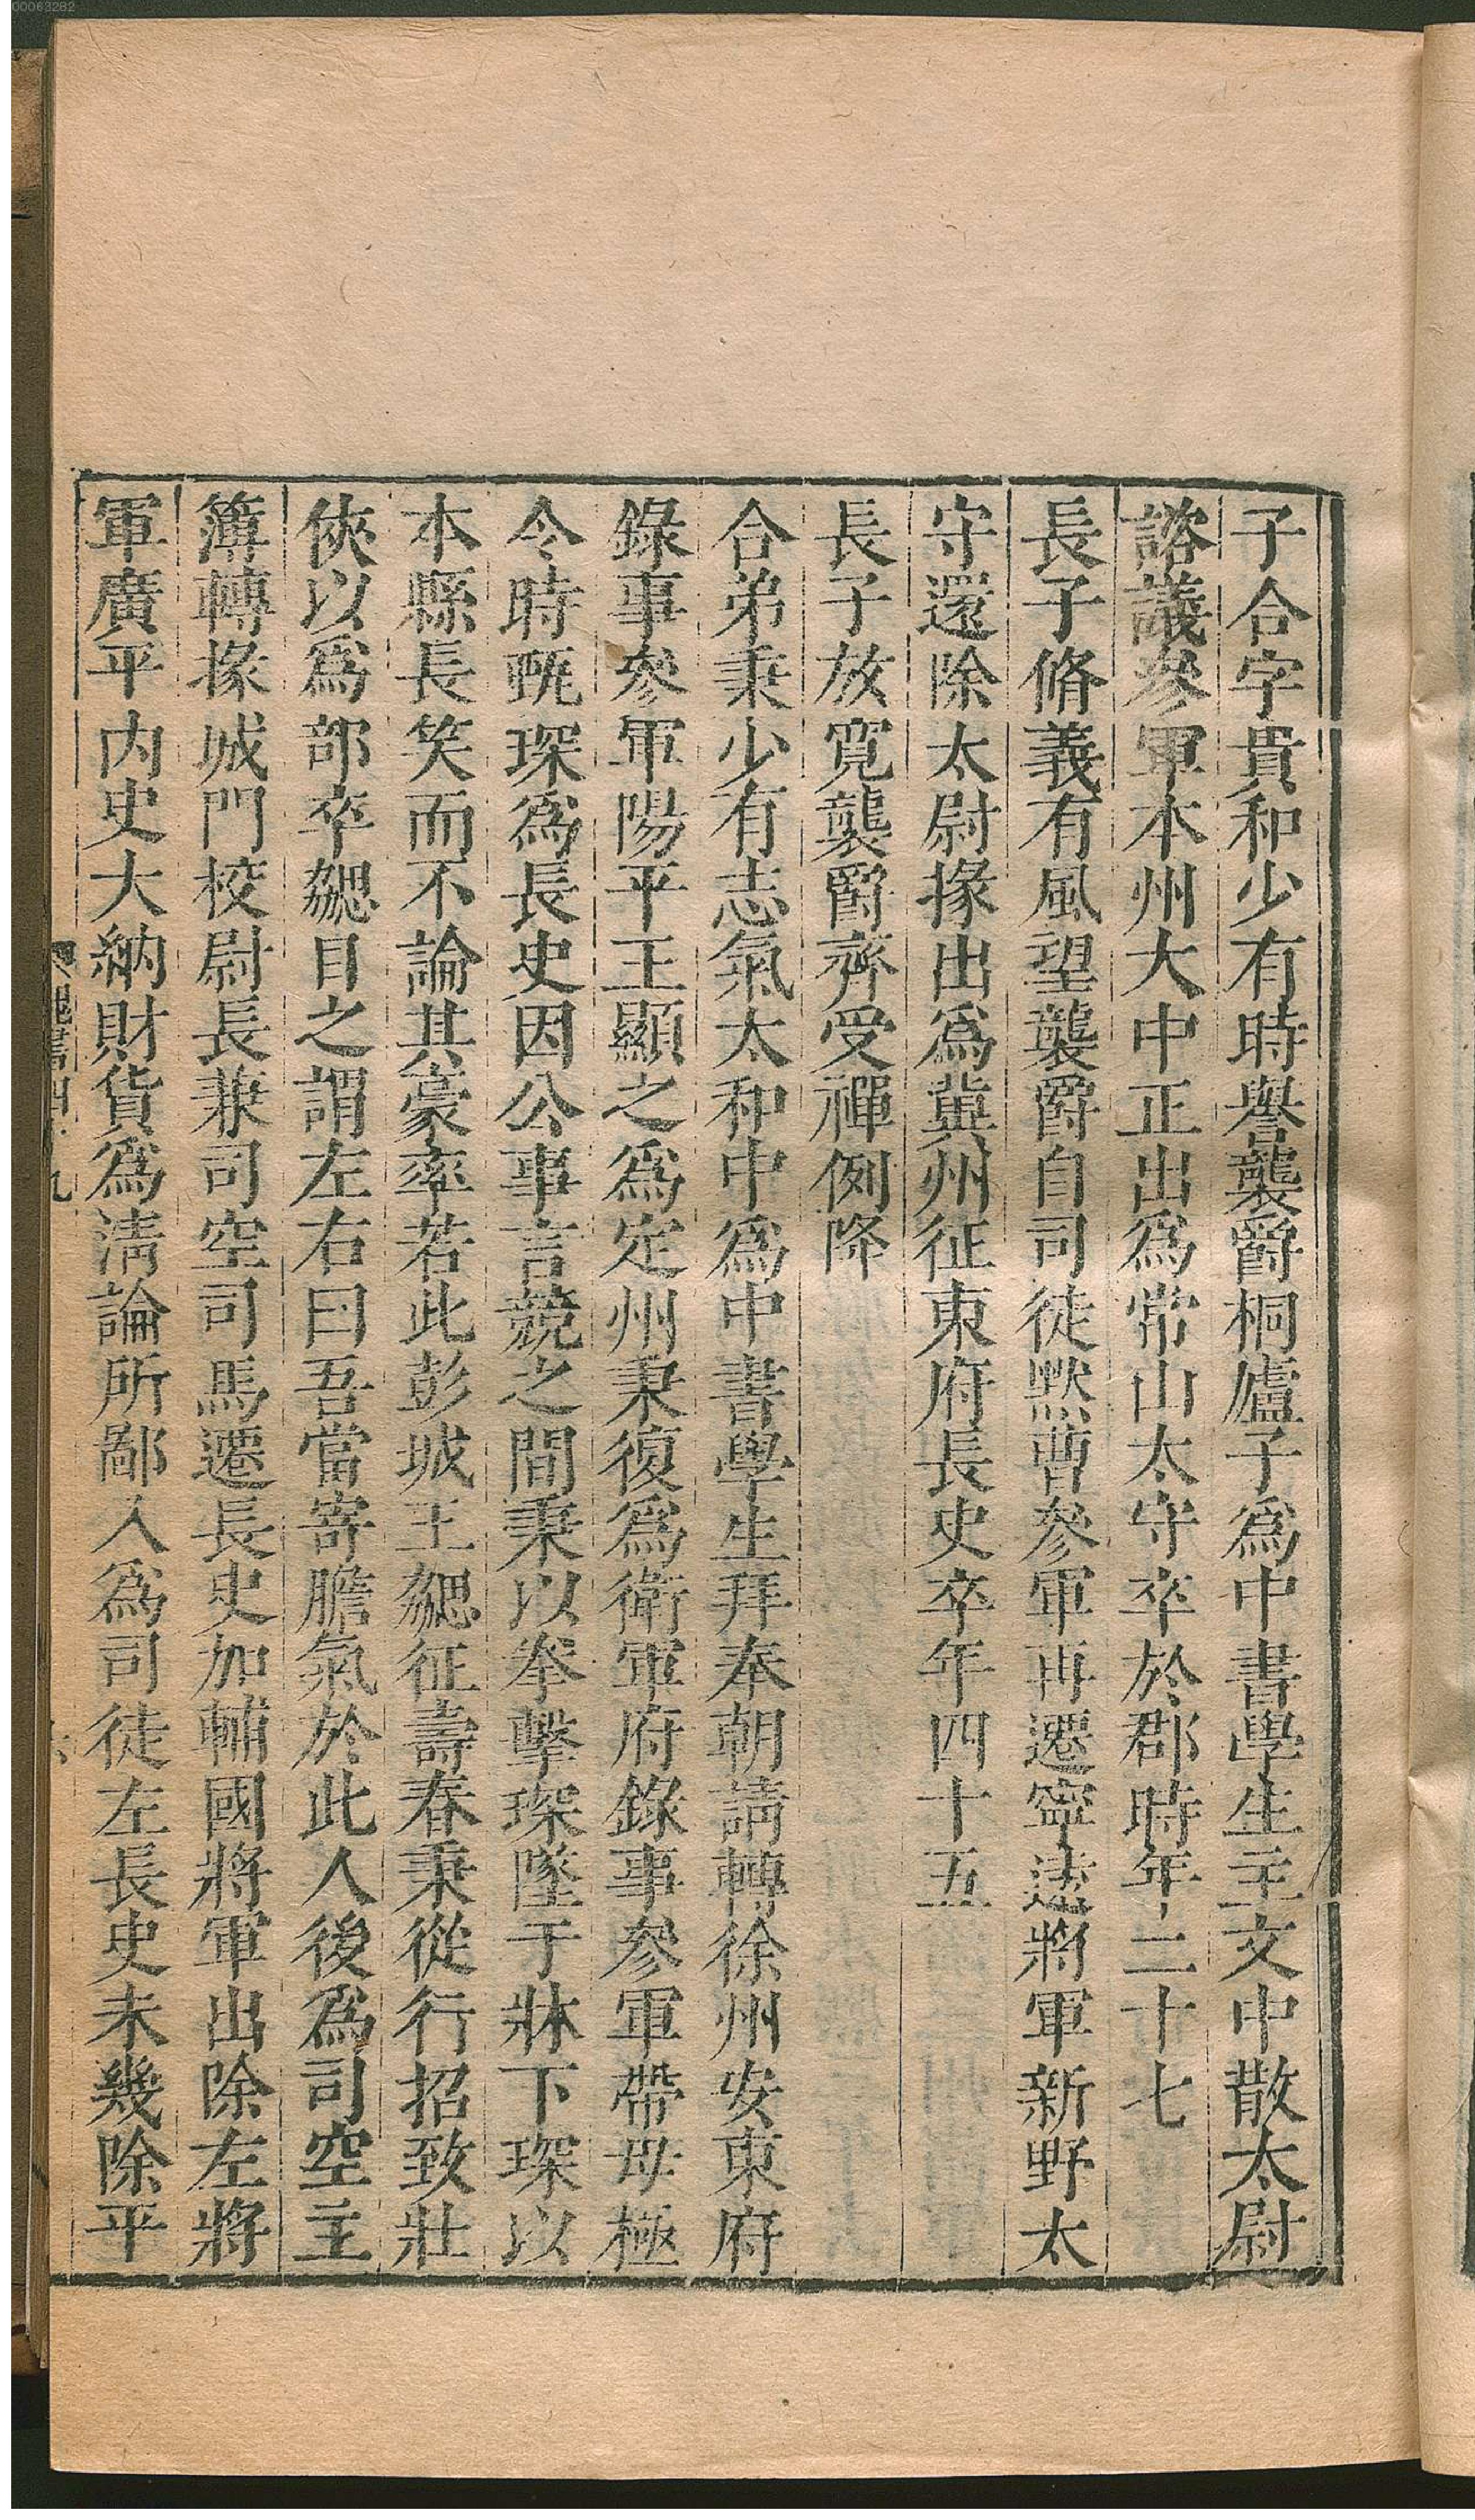 00063282
子合字貴和少有時譽襲爵桐廬子爲中書學生主文中散太尉
諮議參軍本州大中正出爲常山太守卒於郡時年二十七
長子脩義有風望襲爵自司徒默曹參軍再遷寧遠將軍新野太
守還除太尉掾出爲冀州征東府長史卒年四十五
長子放寬襲爵齊受禪例降
合弟秉少有志氣太和中爲中書學生拜奉朝請轉徐州安東府
錄事參軍陽平王顯之爲定州秉復爲衛軍府錄事參軍帶毋極
令時甄琛爲長史因公事言競之間秉以拳擊琛墜于牀下琛以
本縣長笑而不論其豪率若此彭城王勰征壽春秉從行招致壯
俠以爲部卒勰目之謂左右曰吾當寄膽氣於此人後爲司空主
簿轉掾城門校尉長兼司空司馬遷長史加輔國將軍出除左將
軍廣平内史大納財貨爲清論所鄙入爲司徒左長史未幾除平
魏書四十九